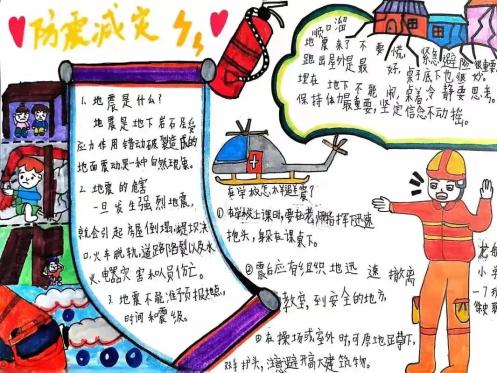 防震减灾
1.地震是什么?
地震是地下岩石层受
应力作用错动破裂造成的
地面震动是一种自然现象。
2.地震的危害
一旦发生强烈地震,
就会引起房屋倒塌,堤坝决
口,火车脱轨,道路陷裂以及水
火、电器灾害和人员伤亡。
3.地震不能准予报地点,
时间和震级。
顺口溜
地震来了不要慌,紧急避险很重要
跑出屋外是最好,桌子底下也很妙。
埋在地下不能闹,
保持体力最重要,坚定信念不动摇。
在学校怎么样避震?
①在学校上课时,要在老师指挥下迅速
抱头,躲在课桌下。
②震后应有组织地迅速撤离
教室,到安全的地方。
在操场或室外时,可原地蹲下,
双手护头,注意避开高大建筑物。